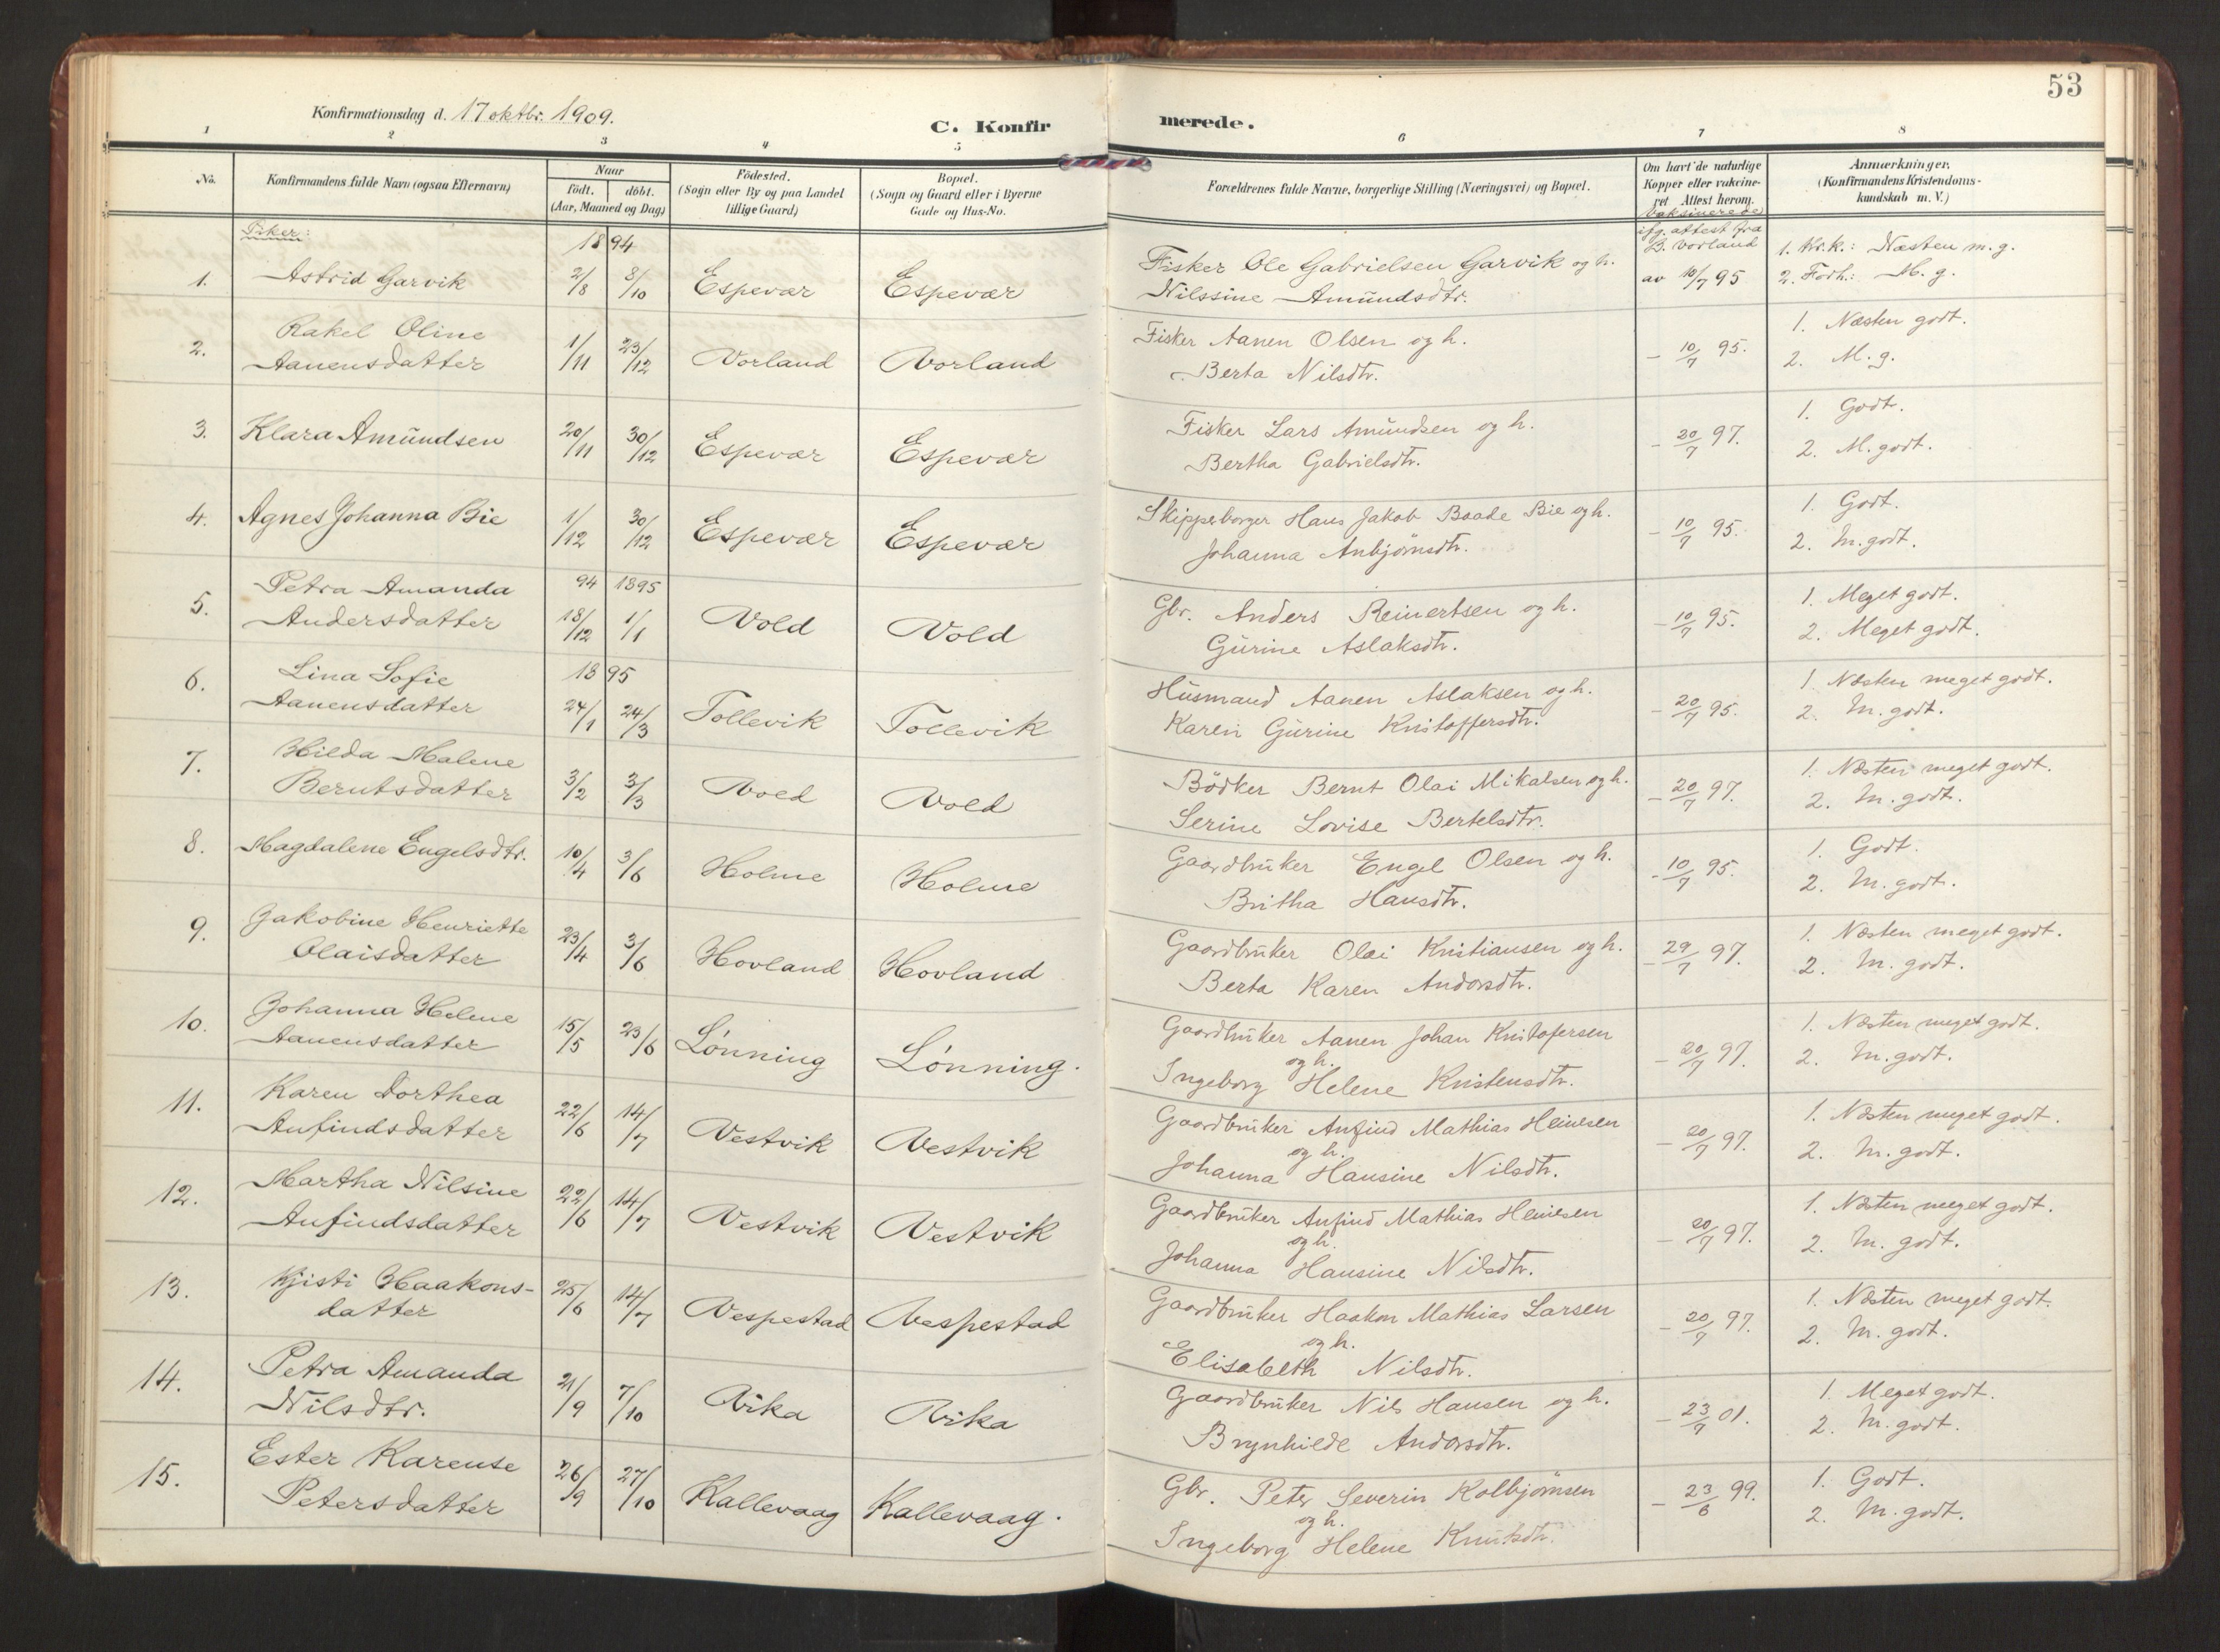 53
Konfirmationsdag d. 17 oktbr. 1909.
C. Konfirmerede.
1 2 3 4 5 6 7 8
No.
Konfirmandens fulde Navn (ogsaa Efternavn)
Naar
født. døbt.
(Aar, Maaned og Dag)
Fødested.
(Sogn eller By og paa Landet
tillige Gaard)
Bopæl.
(Sogn og Gaard eller i Byerne
Gade og Hus-No.
Forældrenes fulde Navne, borgerlige Stilling (Næringsvei) og Bopæl.
Om havt de naturlige
Kopper eller vakcine-
ret Attest herom.
Anmærkninger.
(Konfirmandens Kristendoms-
kundskab m. V.)
Piker:
18 94
Vaksinerede
ifg. attest fra
B. Vorland
1. Astrid Garvik 2/8 8/10 Espevær Espevær
Fisker Ole Gabrielsen Garvik og h.
Nilssine Amundsdtr.
av 10/7 95
1. Kr.k.: Næsten m. g.
2. Forh.: M. g.
2. Rakel Oline
Aanensdatter 1/11 23/12 Vorland Vorland
Fisker Aanen Olsen og h.
Berta Nilsdtr.
– 10/7 95.
1. Næsten godt.
2. M. g.
3. Klara Amundsen 20/11 30/12 Espevær Espevær
Fisker Lars Amundsen og h.
Bertha Gabrielsdtr.
– 20/7 97.
1. Godt.
2. M. godt.
4. Agnes Johanna Bie 1/12 30/12 Espevær Espevær
Skipperborger Hans Jakob Baade Bie og h.
Johanna Anbjørnsdtr.
– 10/7 95.
1. Godt.
2. M. godt.
94 1895
5. Petra Amanda
Andersdatter 18/12 1/1 Vold Vold
Gbr. Anders Reinertsen og h.
Gurine Aslaksdtr.
– 10/7 95.
1. Meget godt.
2. Meget godt.
18 95
6. Lina Sofie
Aanensdatter 24/1 24/3 Tollevik Tollevik
Husmand Aanen Aslaksen og h.
Karen Gurine Kristoffersdtr.
– 20/7 95.
1. Næsten meget godt.
2. M. godt.
7. Hilda Malene
Berntsdatter 3/2 3/3 Vold Vold
Bødker Bernt Olai Mikalsen og h.
Serine Lovise Bertelsdtr.
– 20/7 97.
1. Næsten meget godt.
2. M. godt.
8. Magdalene Engelsdtr. 10/4 3/6 Holme Holme
Gaardbruker Engel Olsen og h.
Britha Hansdtr.
– 10/7 95.
1. Godt.
2. M. godt.
9. Jakobine Henriette
Olaisdatter 23/4 3/6 Hovland Hovland
Gaardbruker Olai Kristiansen og h.
Berta Karen Andorsdtr.
– 29/7 97.
1. Næsten meget godt.
2. M. godt.
10. Johanna Helene
Aanensdatter 15/5 23/6 Lønning Lønning.
Gaardbruker Aanen Johan Kristofersen
og h.
Ingeborg Helene Kristensdtr.
– 20/7 97.
1. Næsten meget godt.
2. M. godt.
11. Karen Dorthea
Anfindsdatter 22/6 14/7 Vestvik Vestvik
Gaardbruker Anfind Mathias Heinesen
og h.
Johanna Hansine Nilsdtr.
– 20/7 97.
1. Næsten meget godt.
2. M. godt.
12. Martha Nilsine
Anfindsdatter 22/6 14/7 Vestvik Vestvik
Gaardbruker Anfind Mathias Heinesen
og h.
Johanna Hansine Nilsdtr.
– 20/7 97.
1. Næsten meget godt.
2. M. godt.
13. Kjisti Haakons-
datter 25/6 14/7 Vespestad Vespestad
Gaardbruker Haakon Mathias Larsen
og h.
Elisabeth Nilsdtr.
– 20/7 97.
1. Næsten meget godt.
2. M. godt.
14. Petra Amanda
Nilsdtr. 21/9 7/10 Vika Vika
Gaardbruker Nils Hansen og h.
Brynhilde Andorsdtr.
– 23/7 01.
1. Meget godt.
2. M. godt.
15. Ester Karense
Petersdatter 26/9 27/10 Kallevaag Kallevaag.
Gbr. Peter Severin Kolbjørnsen
og h.
Ingeborg Helene Knutsdtr.
– 23/6 99.
1. Godt.
2. M. godt.